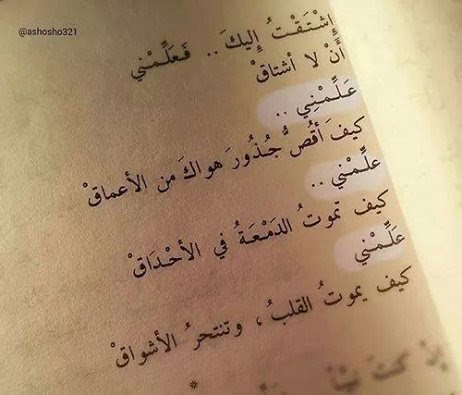 @ashosho321
إِشْتَقْتُ إِليكَ .. فَعَلِّمْني
أَنْ لا أشتاقْ
عَلِّمْنِي ..
كيفَ أَقُصُّ جُذُورَ هواكَ من الأعماقْ
علِّمْني ..
كيف تموتُ الدَمْعَةُ في الأحْدَاقْ
عَلِّمْني
كيف يموتُ القلبُ ، وتنتحرُ الأشواقْ
*